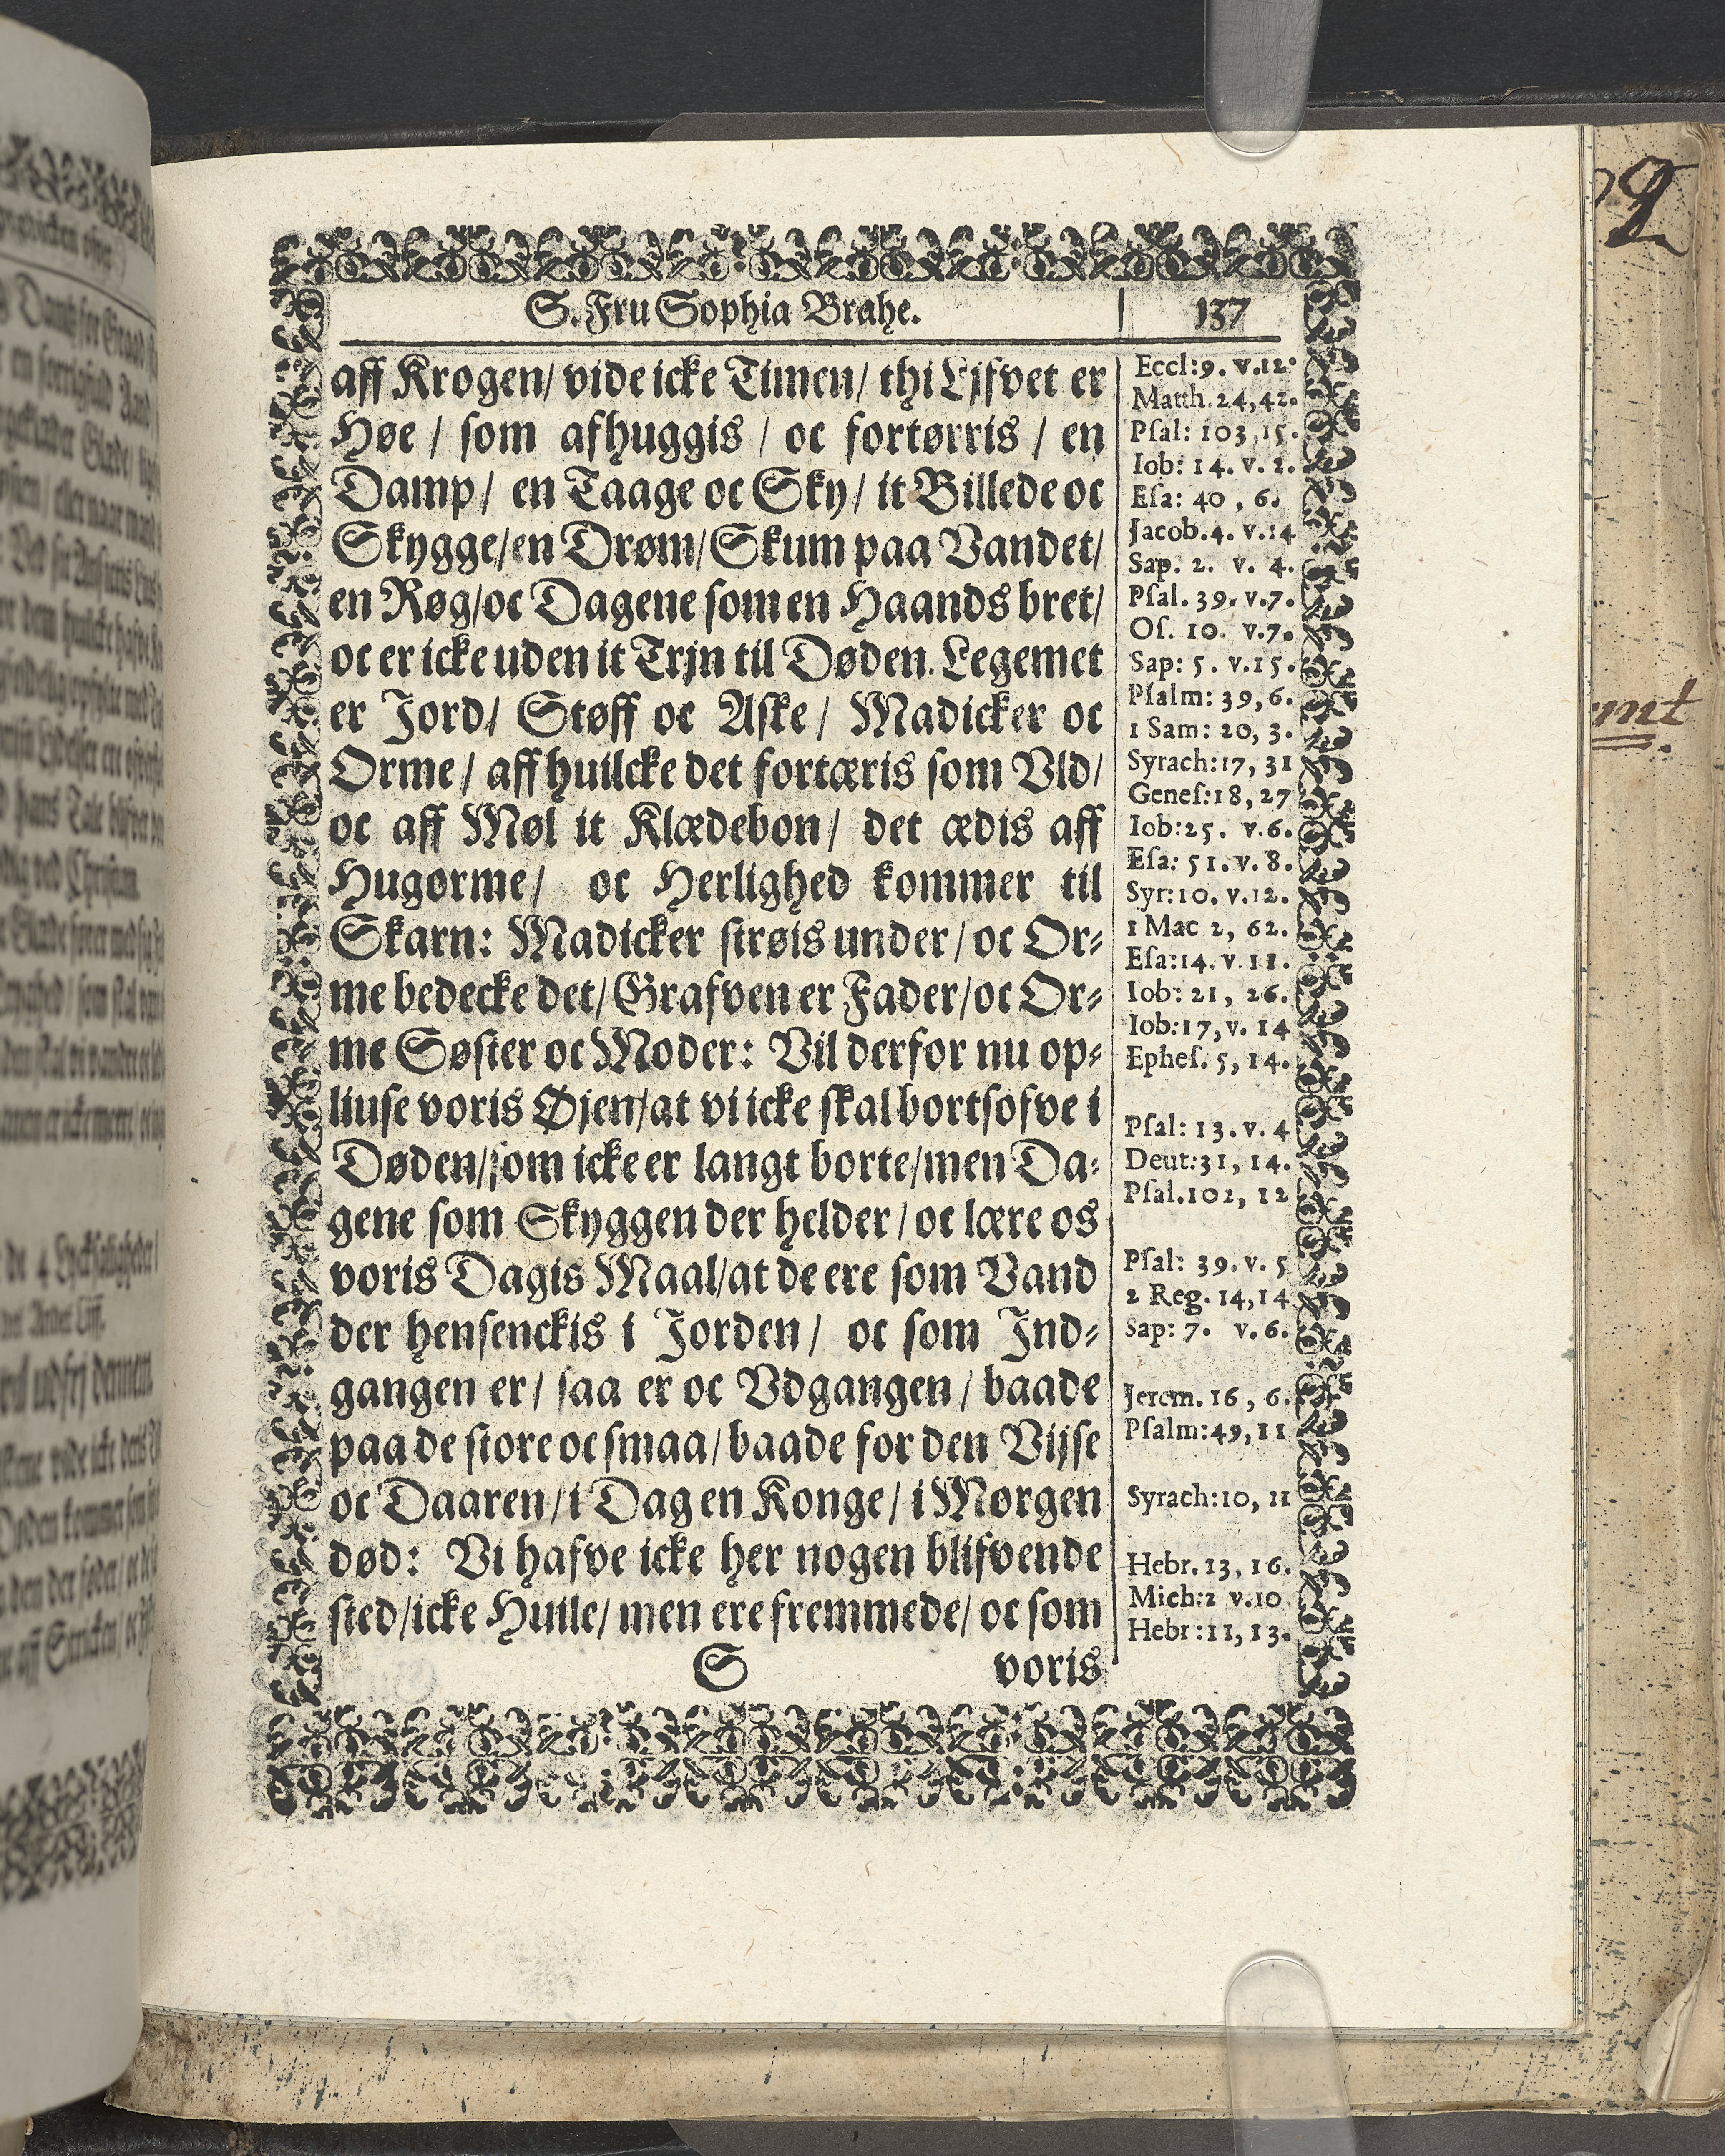 S. Fru Sophia Brahe.
137
aff Krogen/ vide icke Timen/ thi Ljfvet er
Høe / som afhuggis / oc fortørris / en
Damp/ en Taage oc Sky/ it Billede oc
Skygge/en Drøm/Skum paa Vandet/
en Røg/oc Dagene som en Haands bret/
oc er icke uden it Trjn til Døden. Legemet
er Jord/ Støff oc Aske / Madicker oc
Orme / aff huilcke det fortæris som Vld/
oc aff Møl it Klædebon/ det ædis aff
Hugorme/ oc Herlighed kommer til
Skarn: Madicker strøis under / oc Or⸗
me bedecke det/ Grafven er Fader/oc Or⸗
me Søster oc Moder: Vil derfor nu op⸗
liuse voris Øjen/at vi icke skal bortsofve i
Døden/som icke er langt borte/men Da⸗
gene som Skyggen der helder / oc lære os
voris Dagis Maal/at de ere som Vand
der hensenckis i Jorden/ oc som Ind⸗
gangen er/ saa er oc Vdgangen / baade
paa de store oc smaa/ baade for den Vijse
oc Daaren/ i Dag en Konge/ i Morgen
død: Vi hafve icke her nogen blifvende
sted/icke Huile/ men ere fremmede/ oc som
S
voris
Eccl:9. v.12.
Matth.24,42.
Psal: 103,15.
Iob: 14. v. 2.
Esa: 40 , 6.
Jacob.4. v.14
Sap. 2. v. 4.
Psal. 39. v.7.
Os. 10. v.7.
Sap: 5. v.15.
Psalm: 39,6.
1 Sam: 20, 3.
Syrach:17, 31
Genes:18, 27
Iob:25. v.6.
Esa: 51. v. 8.
Syr:10. v.12.
1 Mac 2, 62.
Esa:14. v. 11.
Iob: 21, 26.
Iob:17, v. 14
Ephes. 5, 14.
Psal: 13. v. 4
Deut:31, 14.
Psal.102, 12
Psal: 39. v. 5
2 Reg. 14,14
Sap: 7. v.6.
Jerem. 16 , 6.
Psalm:49,11
Syrach:10, 11
Hebr. 13, 16.
Mich:2 v.10
Hebr:11, 13.